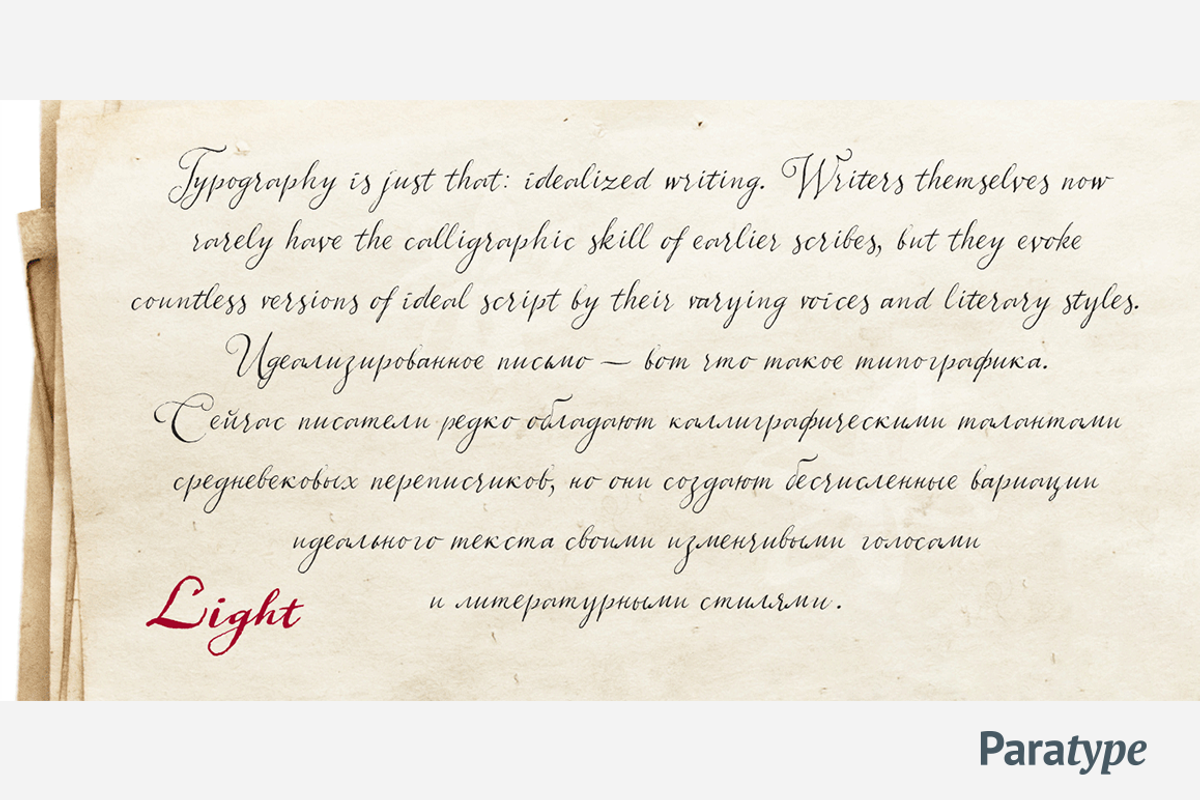 Typography is just that: idealized writing. Writers themselves now
rarely have the calligraphic skill of earlier scribes, but they evoke
countless versions of ideal script by their varying voices and literary styles.
Идеализированное письмо — вот что такое типографика.
Сейчас писатели редко обладают каллиграфическими талантами
средневековых переписчиков, но они создают бесчисленные вариации
идеального текста своими изменчивыми голосами
и литературными стилями.
Light
Paratype